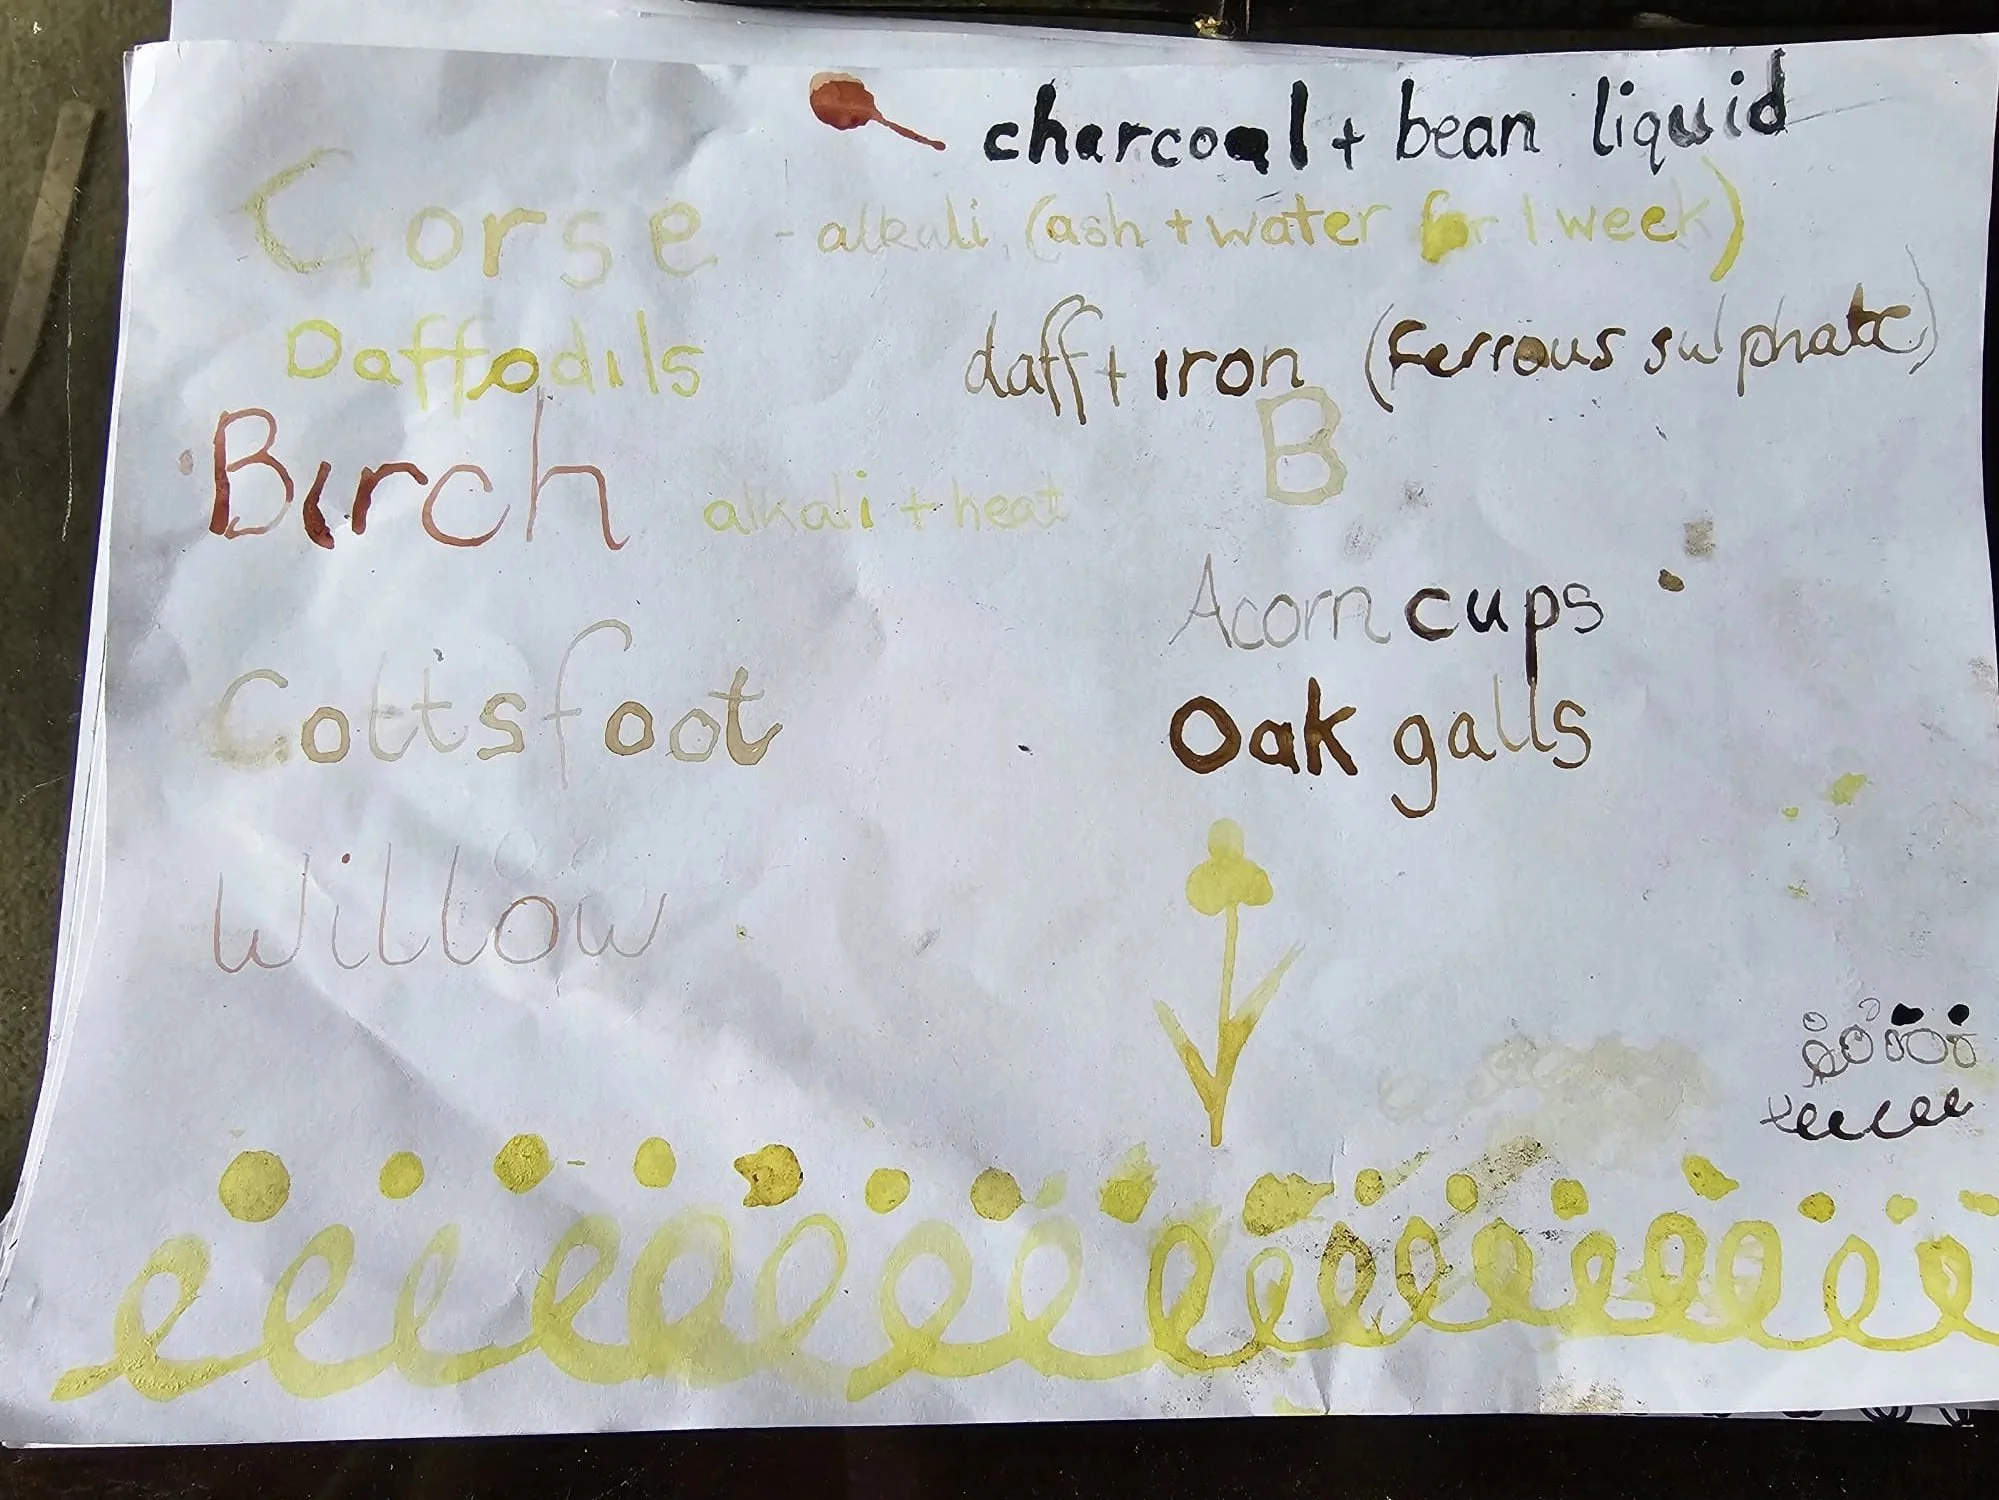 charcoal + bean liquid
Gorse - alkali (ash + water for 1 week)
Daffodils daff + iron (ferrous sulphate)
B
Birch alkali + heat
Acorn cups
Cottsfoot
Oak galls
Willow